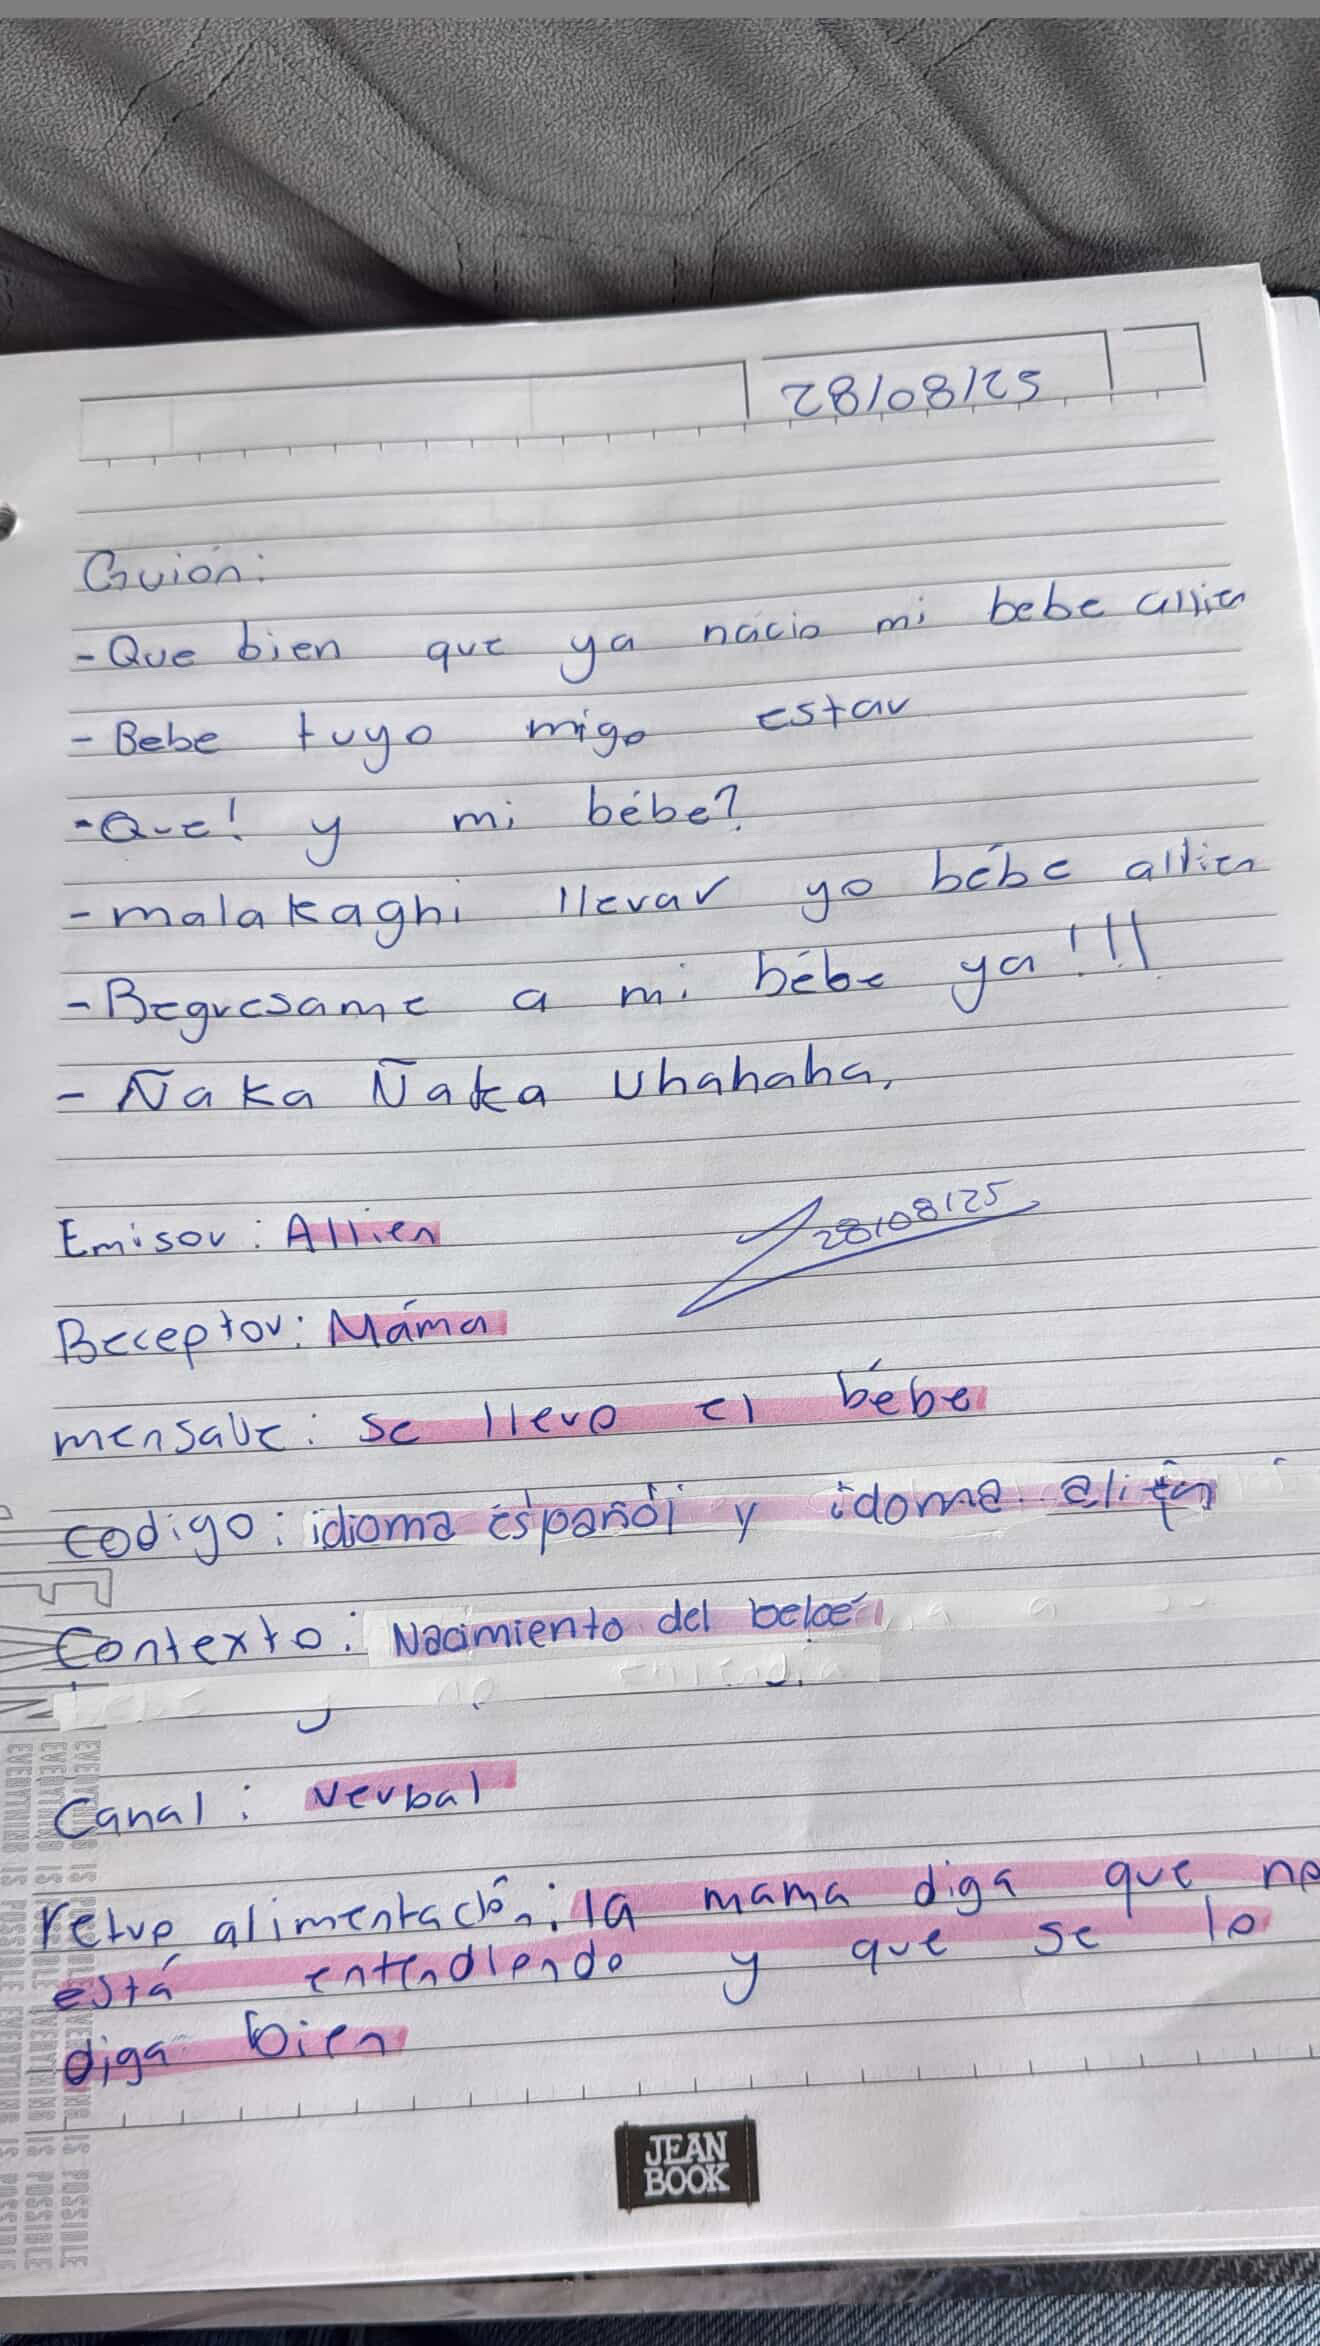 28/08/25
Guión:
- Que bien que ya nácio mi bebe allien
- Bebe tuyo migo estar
- Que! y mi bébe?
- malakaghi llevar yo bébe allien
- Regresame a mi bébe ya!!!
- Ñaka Ñaka Uhahaha,
Emisor: Allien
28/08/25
Receptor: Máma
mensaje: se llevo el bébe
codigo: idioma español y idoma alien
Contexto: Nacimiento del bebé
y no entindia
Canal: verbal
retro alimentación: la mama diga que no
está entendiendo y que se lo
diga bien
JEAN
BOOK
EVERYTHING IS POSSIBLE EVERYTHING IS POSSIBLE